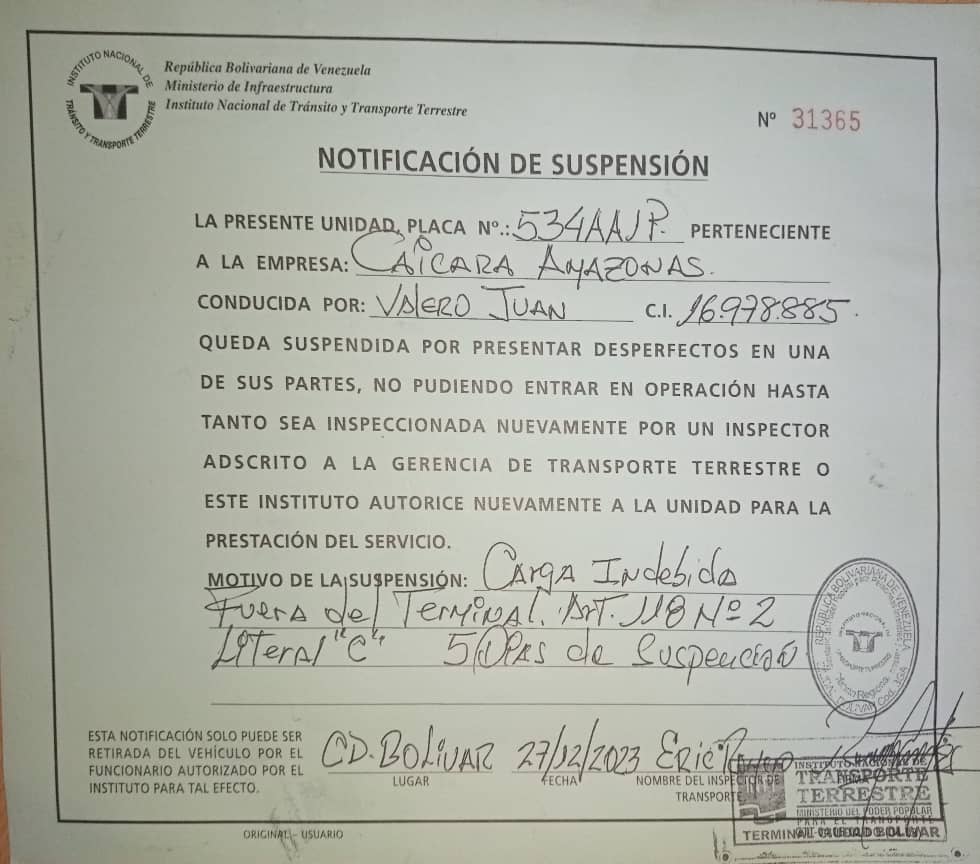 INSTITUTO NACIONAL DE TRÁNSITO Y TRANSPORTE TERRESTRE
República Bolivariana de Venezuela
Ministerio de Infraestructura
Instituto Nacional de Tránsito y Transporte Terrestre
Nº 31365
NOTIFICACIÓN DE SUSPENSIÓN
LA PRESENTE UNIDAD, PLACA Nº.: 534AAJP. PERTENECIENTE
A LA EMPRESA: CAÍCARA AMAZONAS.
CONDUCIDA POR: VALERO JUAN C.I. 16.978.885.
QUEDA SUSPENDIDA POR PRESENTAR DESPERFECTOS EN UNA
DE SUS PARTES, NO PUDIENDO ENTRAR EN OPERACIÓN HASTA
TANTO SEA INSPECCIONADA NUEVAMENTE POR UN INSPECTOR
ADSCRITO A LA GERENCIA DE TRANSPORTE TERRESTRE O
ESTE INSTITUTO AUTORICE NUEVAMENTE A LA UNIDAD PARA LA
PRESTACIÓN DEL SERVICIO.
MOTIVO DE LA SUSPENSIÓN: CARGA INdebida
Fuera del TERMINAL. ART. 118 Nº 2
LITeral "C" 5 DÍAS de Suspención
REPÚBLICA BOLIVARIANA DE VENEZUELA
ESTA NOTIFICACIÓN SOLO PUEDE SER
RETIRADA DEL VEHÍCULO POR EL
FUNCIONARIO AUTORIZADO POR EL
INSTITUTO PARA TAL EFECTO.
CD. BOLÍVAR 27/12/2023 ERIC
LUGAR FECHA NOMBRE DEL INSPECTOR DE
TRANSPORTE
TRANSPORTE
TERRESTRE
MINISTERIO DEL PODER POPULAR
PARA EL TRANSPORTE
TERMINAL CIUDAD BOLIVAR
ORIGINAL - USUARIO